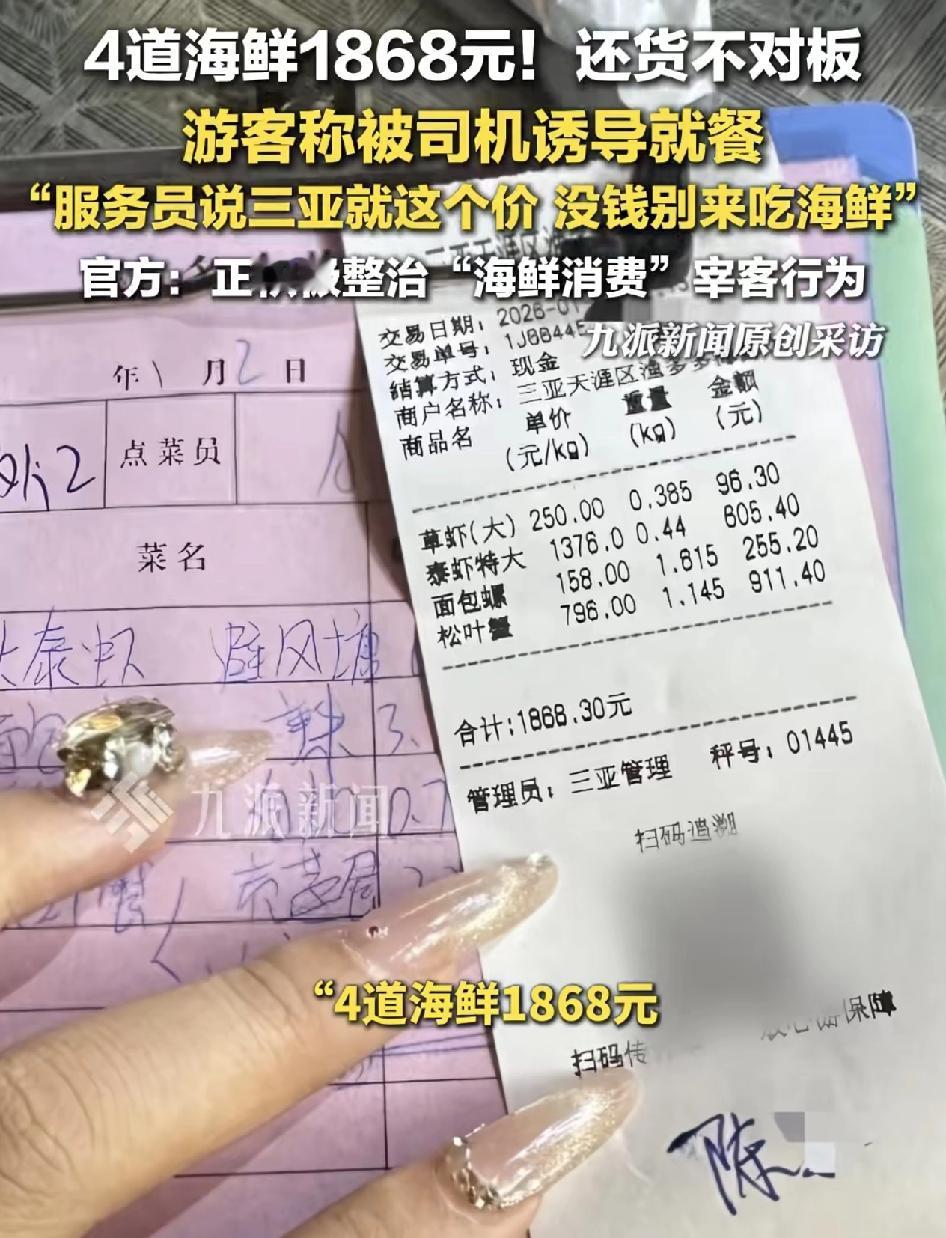 4道海鲜1868元！还货不对板
游客称被司机诱导就餐
“服务员说三亚就这个价 没钱别来吃海鲜”
官方：正积极整治“海鲜消费”宰客行为
九派新闻原创采访
年 1 月 2 日
点菜员
菜名
泰虾 避风塘
辣
九派新闻
交易日期：2026-01
交易单号：1J88445
结算方式：现金
商户名称：三亚天涯区渔多多
商品名 单价(元/kg) 重量(kg) 金额(元)
草虾(大) 250.00 0.385 96.30
泰虾特大 1376.0 0.44 605.40
面包螺 158.00 1.615 255.20
松叶蟹 796.00 1.145 911.40
合计:1868.30元
管理员：三亚管理 秤号：01445
扫码追溯
“4道海鲜1868元
扫码传
保障
陈